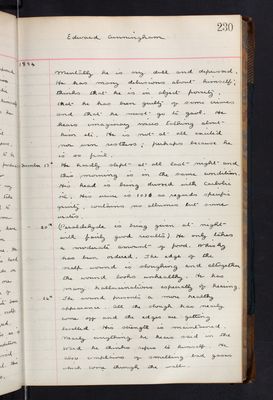 230
Edward Cunningham
1894
Mentally he is very dull and depressed.
He has many delusions about himself;
thinks that he is in abject poverty,
that he has been guilty of some crimes
and that he must go to gaol. He
hears imaginary voices talking about
him etc. He is not at all excited
nor even restless; perhaps because he
is so faint.
December 15th He hardly slept at all last night and
this morning is in the same condition.
His head is being dressed with carbolic
oil. His urine is 1030 as regards specific
gravity, contains no albumen but some
urates.
20th (Paraldehyde is being given at night
with fairly good results). He only takes
a moderate amount of food. Whisky
has been ordered. The edge of the
wound is sloughing and altogether
the wound looks unhealthy. He has
many hallucinations especially of hearing.
The wound presents a more healthy
appearance: all the slough has nearly
come off and the edges are getting
levelled. His strength is maintained.
Nearly anything he hears said in the
ward he thinks refers to himself. He
also complains of smelling bad gases
which come through the walls.